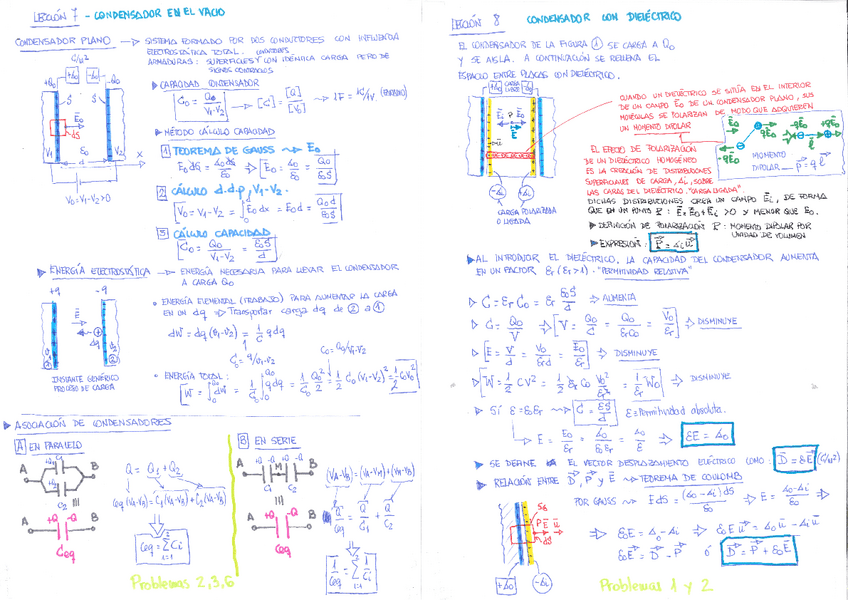 LECCIÓN 7 - CONDENSADOR EN EL VACIO
CONDENSADOR PLANO → SISTEMA FORMADO POR DOS CONDUCTORES CON INFLUENCIA
ELECTROSTÁTICA TOTAL.
ARMADURAS: SUPERFICIES CON IDÉNTICA CARGA PERO DE
SIGNOS CONTRARIOS
▶ CAPACIDAD CONDENSADOR
C₀ = Q₀/(V₁-V₂) → [C] = [Q]/[V]
▶ MÉTODO CÁLCULO CAPACIDAD
1 TEOREMA DE GAUSS → E₀
2 CÁLCULO d.d.p, V₁-V₂.
V₀ = V₁-V₂ = ∫E₀dx = E₀d = Q₀d/ε₀S
V₀ = V₁-V₂ > 0
3 CÁLCULO CAPACIDAD
C₀ = Q₀/(V₁-V₂) = ε₀S/d
▶ ENERGÍA ELECTROSTÁTICA → ENERGÍA NECESARIA PARA LLEVAR EL CONDENSADOR
A CARGA Q₀
• ENERGÍA ELEMENTAL (TRABAJO) PARA AUMENTAR LA CARGA
EN UN dq ⇒ Transportar carga dq de 2 a 1
dW = dq(V₁-V₂) = 1/C q dq
INSTANTE GENÉRICO
PROCESO DE CARGA
• ENERGÍA TOTAL:
▶ ASOCIACIÓN DE CONDENSADORES
A EN PARALELO
Q = Q₁ + Q₂
Ceq(VA-VB) = C₁(VA-VB) + C₂(VA-VB)
Ceq = Σ Ci
B EN SERIE
(VA-VB) = (VA-VM) + (VM-VB)
Q/Ceq = Q/C₁ + Q/C₂
1/Ceq = Σ 1/Ci
Problemas 2,3,6
LECCIÓN 8 CONDENSADOR CON DIELÉCTRICO
EL CONDENSADOR DE LA FIGURA 1 SE CARGA A Q₀
Y SE AISLA. A CONTINUACIÓN SE RELLENA EL
ESPACIO ENTRE PLACAS CON DIELÉCTRICO.
CUANDO UN DIELÉCTRICO SE SITÚA EN EL INTERIOR
DE UN CAMPO E₀ DE UN CONDENSADOR PLANO, SUS
MOLÉCULAS SE POLARIZAN DE MODO QUE ADQUIEREN
UN MOMENTO DIPOLAR
MOMENTO
DIPOLAR → p = q l
EL EFECTO DE POLARIZACIÓN
DE UN DIELÉCTRICO HOMOGÉNEO
ES LA CREACIÓN DE DISTRIBUCIONES
SUPERFICIALES DE CARGA, Δi, SOBRE
LAS CARAS DEL DIELÉCTRICO. "CARGA LIGADA".
DICHAS DISTRIBUCIONES CREAN UN CAMPO Ei, DE FORMA
QUE EN UN PUNTO P: E = E₀ + Ei > 0 Y MENOR QUE E₀.
CARGA POLARIZADA
O LIGADA
▶ DEFINICIÓN DE POLARIZACIÓN P: MOMENTO DIPOLAR POR
UNIDAD DE VOLUMEN
▶ EXPRESIÓN: P = Δi u
▶ AL INTRODUCIR EL DIELÉCTRICO, LA CAPACIDAD DEL CONDENSADOR AUMENTA
EN UN FACTOR εr (εr > 1). "PERMITIVIDAD RELATIVA"
▷ C = εr C₀ = εr ε₀S/d ⇒ AUMENTA
▷ C = Q₀/V ⇒ V = Q₀/C = Q₀/εrC₀ = V₀/εr ⇒ DISMINUYE
▷ E = V/d = V₀/εrd = E₀/εr ⇒ DISMINUYE
▷ W = 1/2 CV² = 1/2 εr C₀ V₀²/εr² = 1/εr W₀ ⇒ DISMINUYE
▶ SI ε = ε₀εr → C = εS/d ε ≡ Permitividad absoluta.
E = E₀/εr = Δ₀/ε₀εr = Δ₀/ε ⇒ εE = Δ₀
▶ SE DEFINE EL VECTOR DESPLAZAMIENTO ELÉCTRICO COMO: D = εE (C/m²)
▶ RELACIÓN ENTRE D, P Y E → TEOREMA DE COULOMB
POR GAUSS → EdS = (Δ₀-Δi)dS/ε₀ ⇒ E = (Δ₀-Δi)/ε₀ ⇒
⇒ ε₀E = Δ₀-Δi ⇒ ε₀E u = Δ₀u - Δi u
ε₀E = D - P ó D = P + ε₀E
Problemas 1 y 2